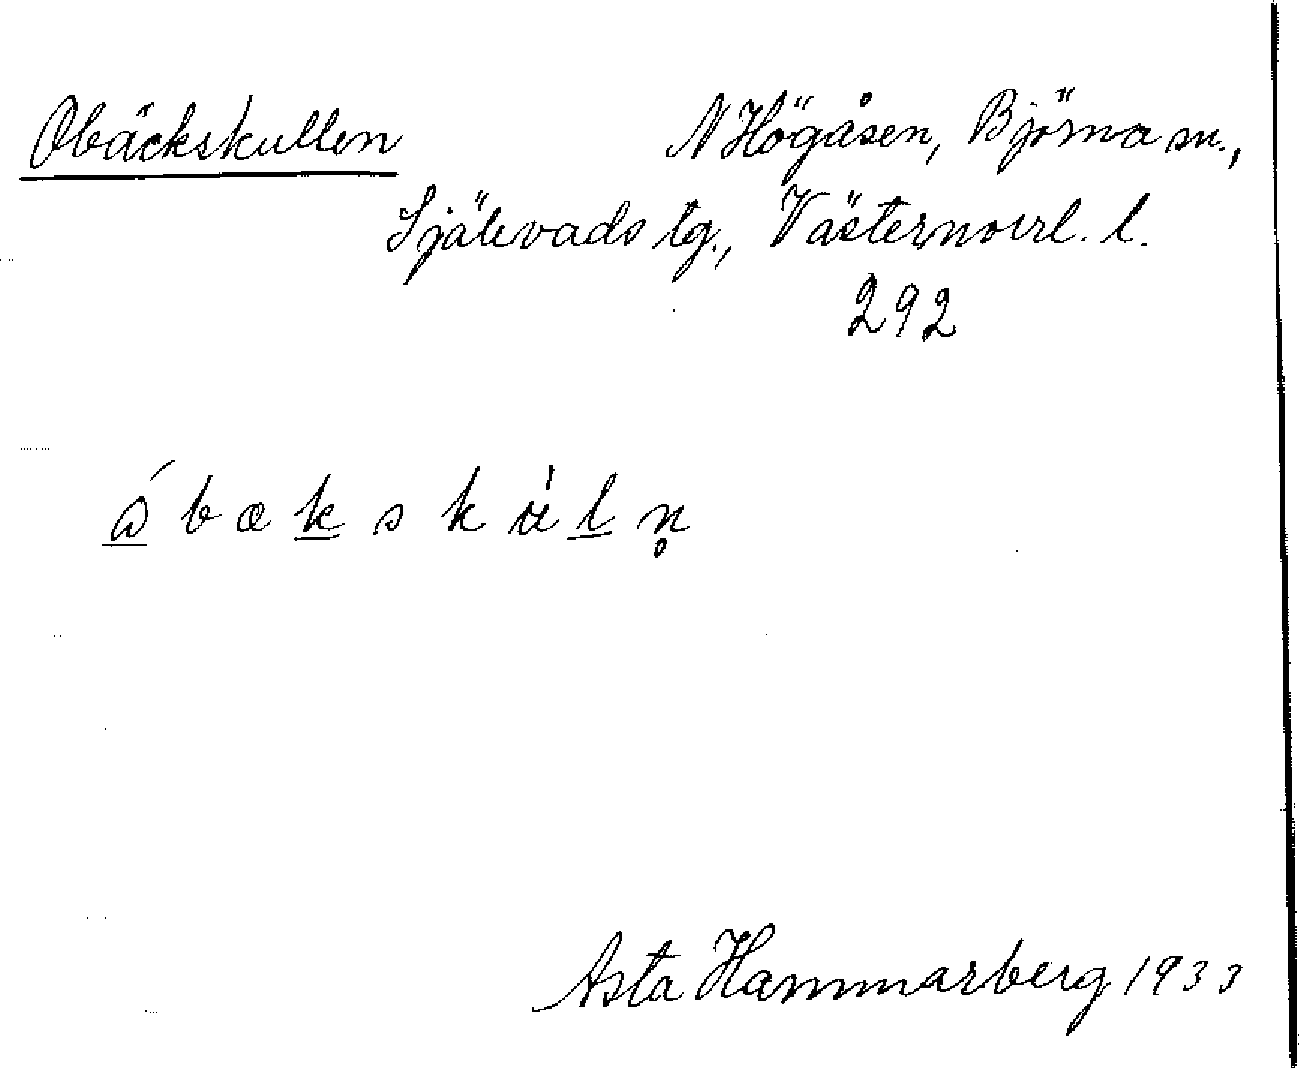 Obäckskullen N Högåsen, Björna sn.,
Själevads tg., Västernorrl. l.
292
ώ b æ k s k ù l n̥
Asta Hammarberg 1933